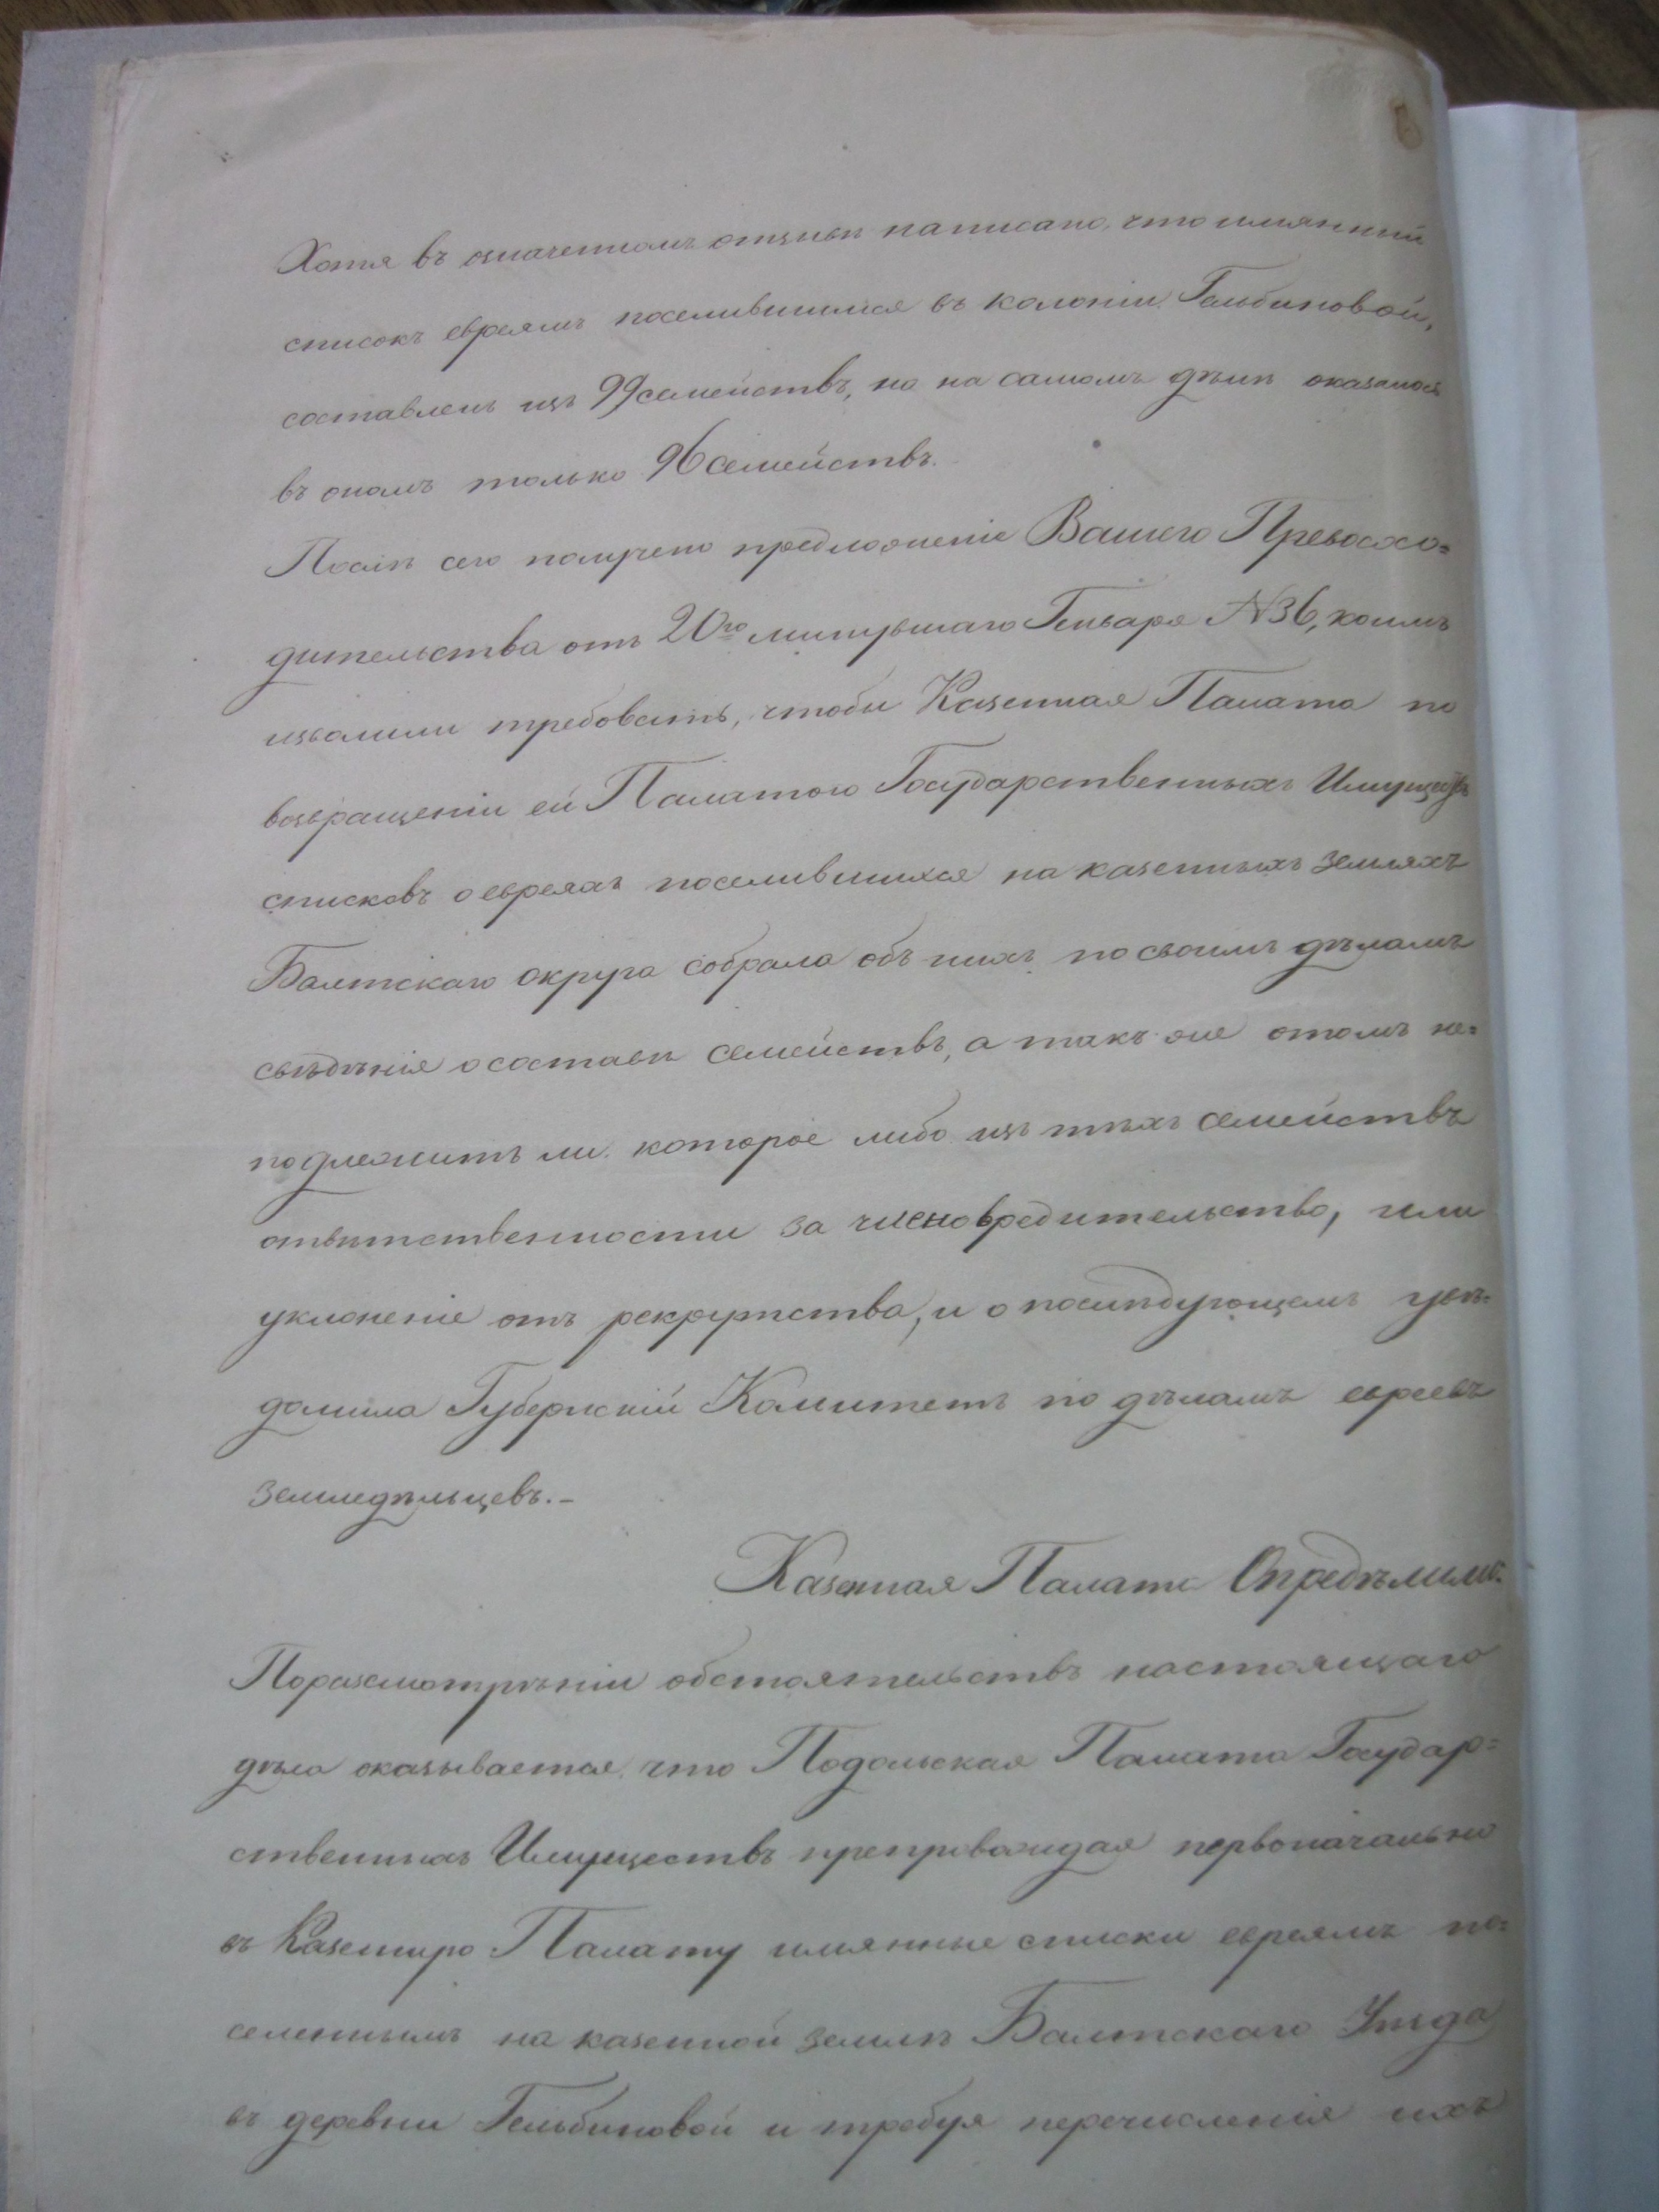 Хотя въ означенномъ отзывѣ написано, что имянный
списокъ евреямъ поселившимся въ колоніи Гольбиновой,
составленъ изъ 99 семействъ, но на самомъ дѣлѣ оказалось
въ ономъ только 96 семействъ.
Послѣ сего получено предложеніе Вашего Превосхо=
дительства отъ 20го минувшаго Генваря №36, коимъ
изволили требовать, чтобы Казенная Палата по
возвращеніи ей Палатою Государственныхъ Имуществъ
списковъ о евреяхъ поселившихся на казенныхъ земляхъ
Балтскаго округа собрала объ нихъ по своимъ дѣламъ
свѣдѣнія о составѣ семействъ, а такъ же о томъ не=
подлежитъ ли которое либо изъ тѣхъ семействъ
отвѣтственности за членовредительство, или
уклоненіе отъ рекрутства, и о послѣдующемъ увѣ=
домила Губернскій Комитетъ по дѣламъ евреевъ
земледѣльцевъ.-
Казенная Палата Опредѣлила:
По разсмотрѣніи обстоятельствъ настоящаго
дѣла оказывается, что Подольская Палата Государ=
ственныхъ Имуществъ препровождая первоначально
въ Казенную Палату имянные списки евреямъ по=
селеннымъ на казенной землѣ Балтскаго Уѣзда
въ деревни Гельбиновой и требуя перечисленія ихъ